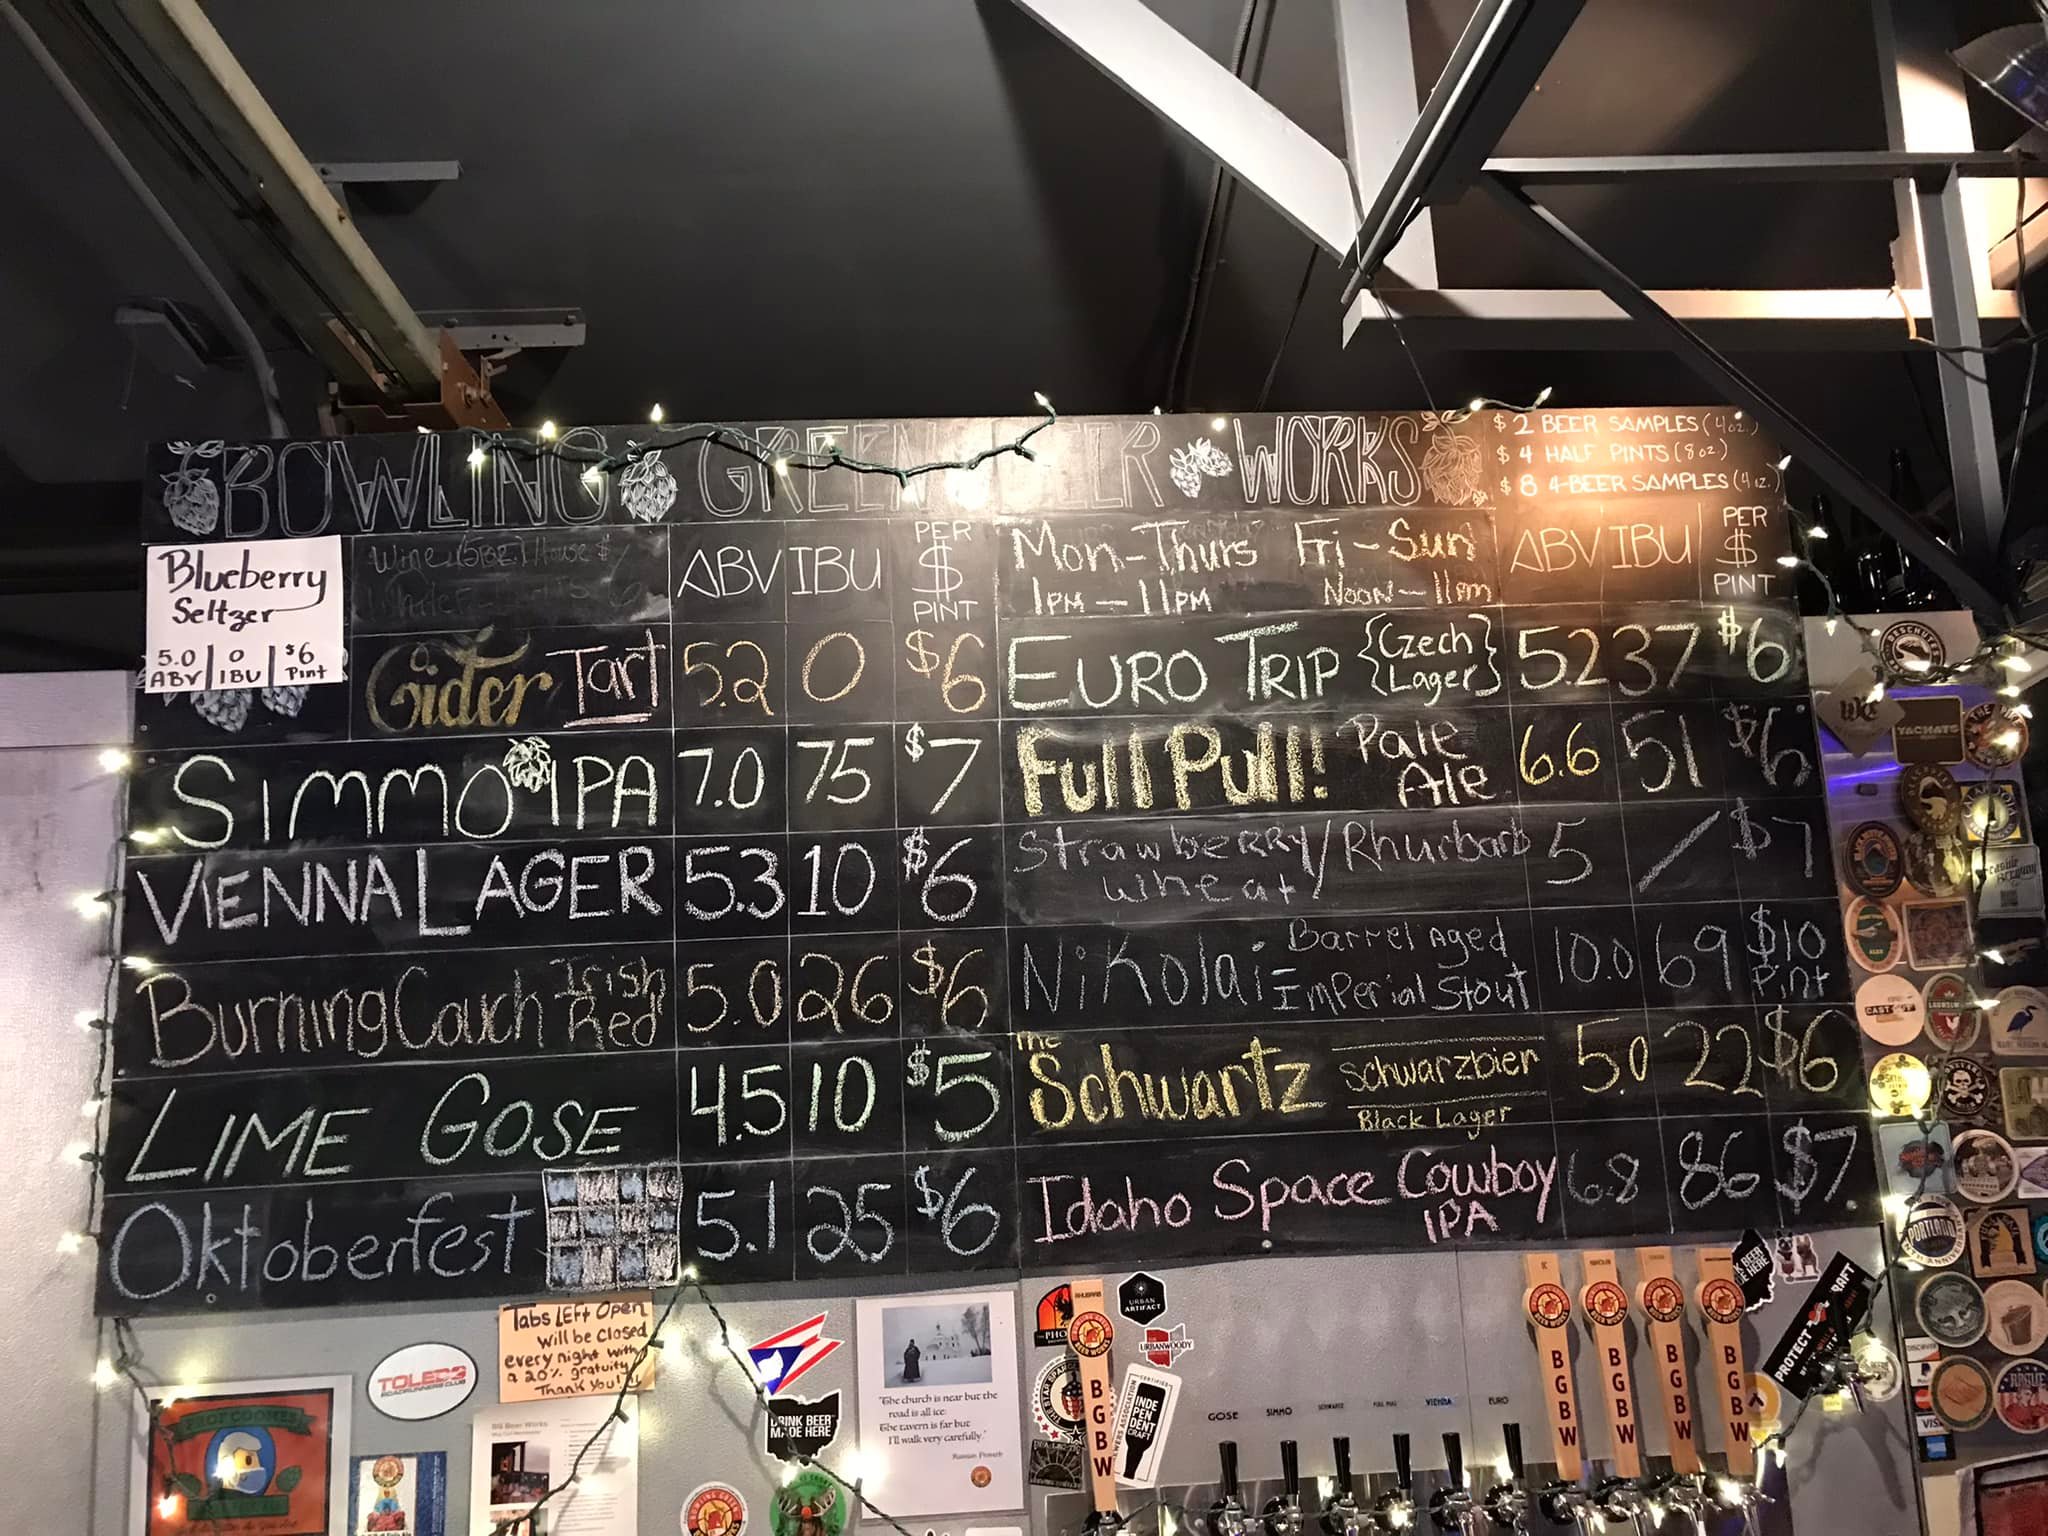 BOWLING GREEN BEER WORKS
$2 BEER SAMPLES (4oz.)
$4 HALF PINTS (8oz)
$8 4-BEER SAMPLES (4oz.)
Blueberry
Seltzer
5.0 ABV | 0 IBU | $6 Pint
ABV IBU PER $ PINT
Cider Tart 5.2 0 $6
SIMMO IPA 7.0 75 $7
VIENNA LAGER 5.3 10 $6
Burning Couch Irish Red 5.0 26 $6
LIME GOSE 4.5 10 $5
Oktoberfest 5.1 25 $6
Mon-Thurs Fri-Sun
1PM-11PM Noon-11pm
ABV IBU PER $ PINT
EURO TRIP {Czech Lager} 5.2 37 $6
Full Pull! Pale Ale 6.6 51 $6
Strawberry/Rhurbarb wheat 5 / $7
Nikolai Barrel Aged Imperial Stout 10.0 69 $10 Pint
The Schwartz Schwarzbier Black Lager 5.0 22 $6
Idaho Space Cowboy IPA 6.8 86 $7
Tabs LEft Open
Will be closed
every night with
a 20% gratuity
Thank You!
TOLEDO
ROADRUNNERS CLUB
PROF COOMES
BG Beer Works
DRINK BEER
MADE HERE
"The church is near but the
road is all ice.
The tavern is far but
I'll walk very carefully."
Russian Proverb
URBAN
ARTIFACT
URBANWOODY
RHUBARB
BGBW
CERTIFIED
INDE
PEN
DENT
CRAFT
GOSE
SIMMO
SCHWARTZ
FULL PULL
VIENNA
EURO
BGBW
BGBW
BGBW
BGBW
PROTECT
CRAFT
DESCHUTES
YACHATS
CAST OUT
PORTLAND
DISCOVER
VISA
ROGUE